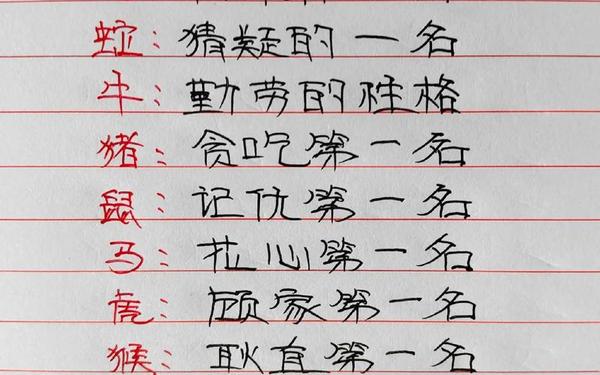 蛇：猜疑的一名
牛：勤劳的性格
猪：贪吃第一名
鼠：记仇第一名
马：拉心第一名
虎：顾家第一名
猴：耿直第一名